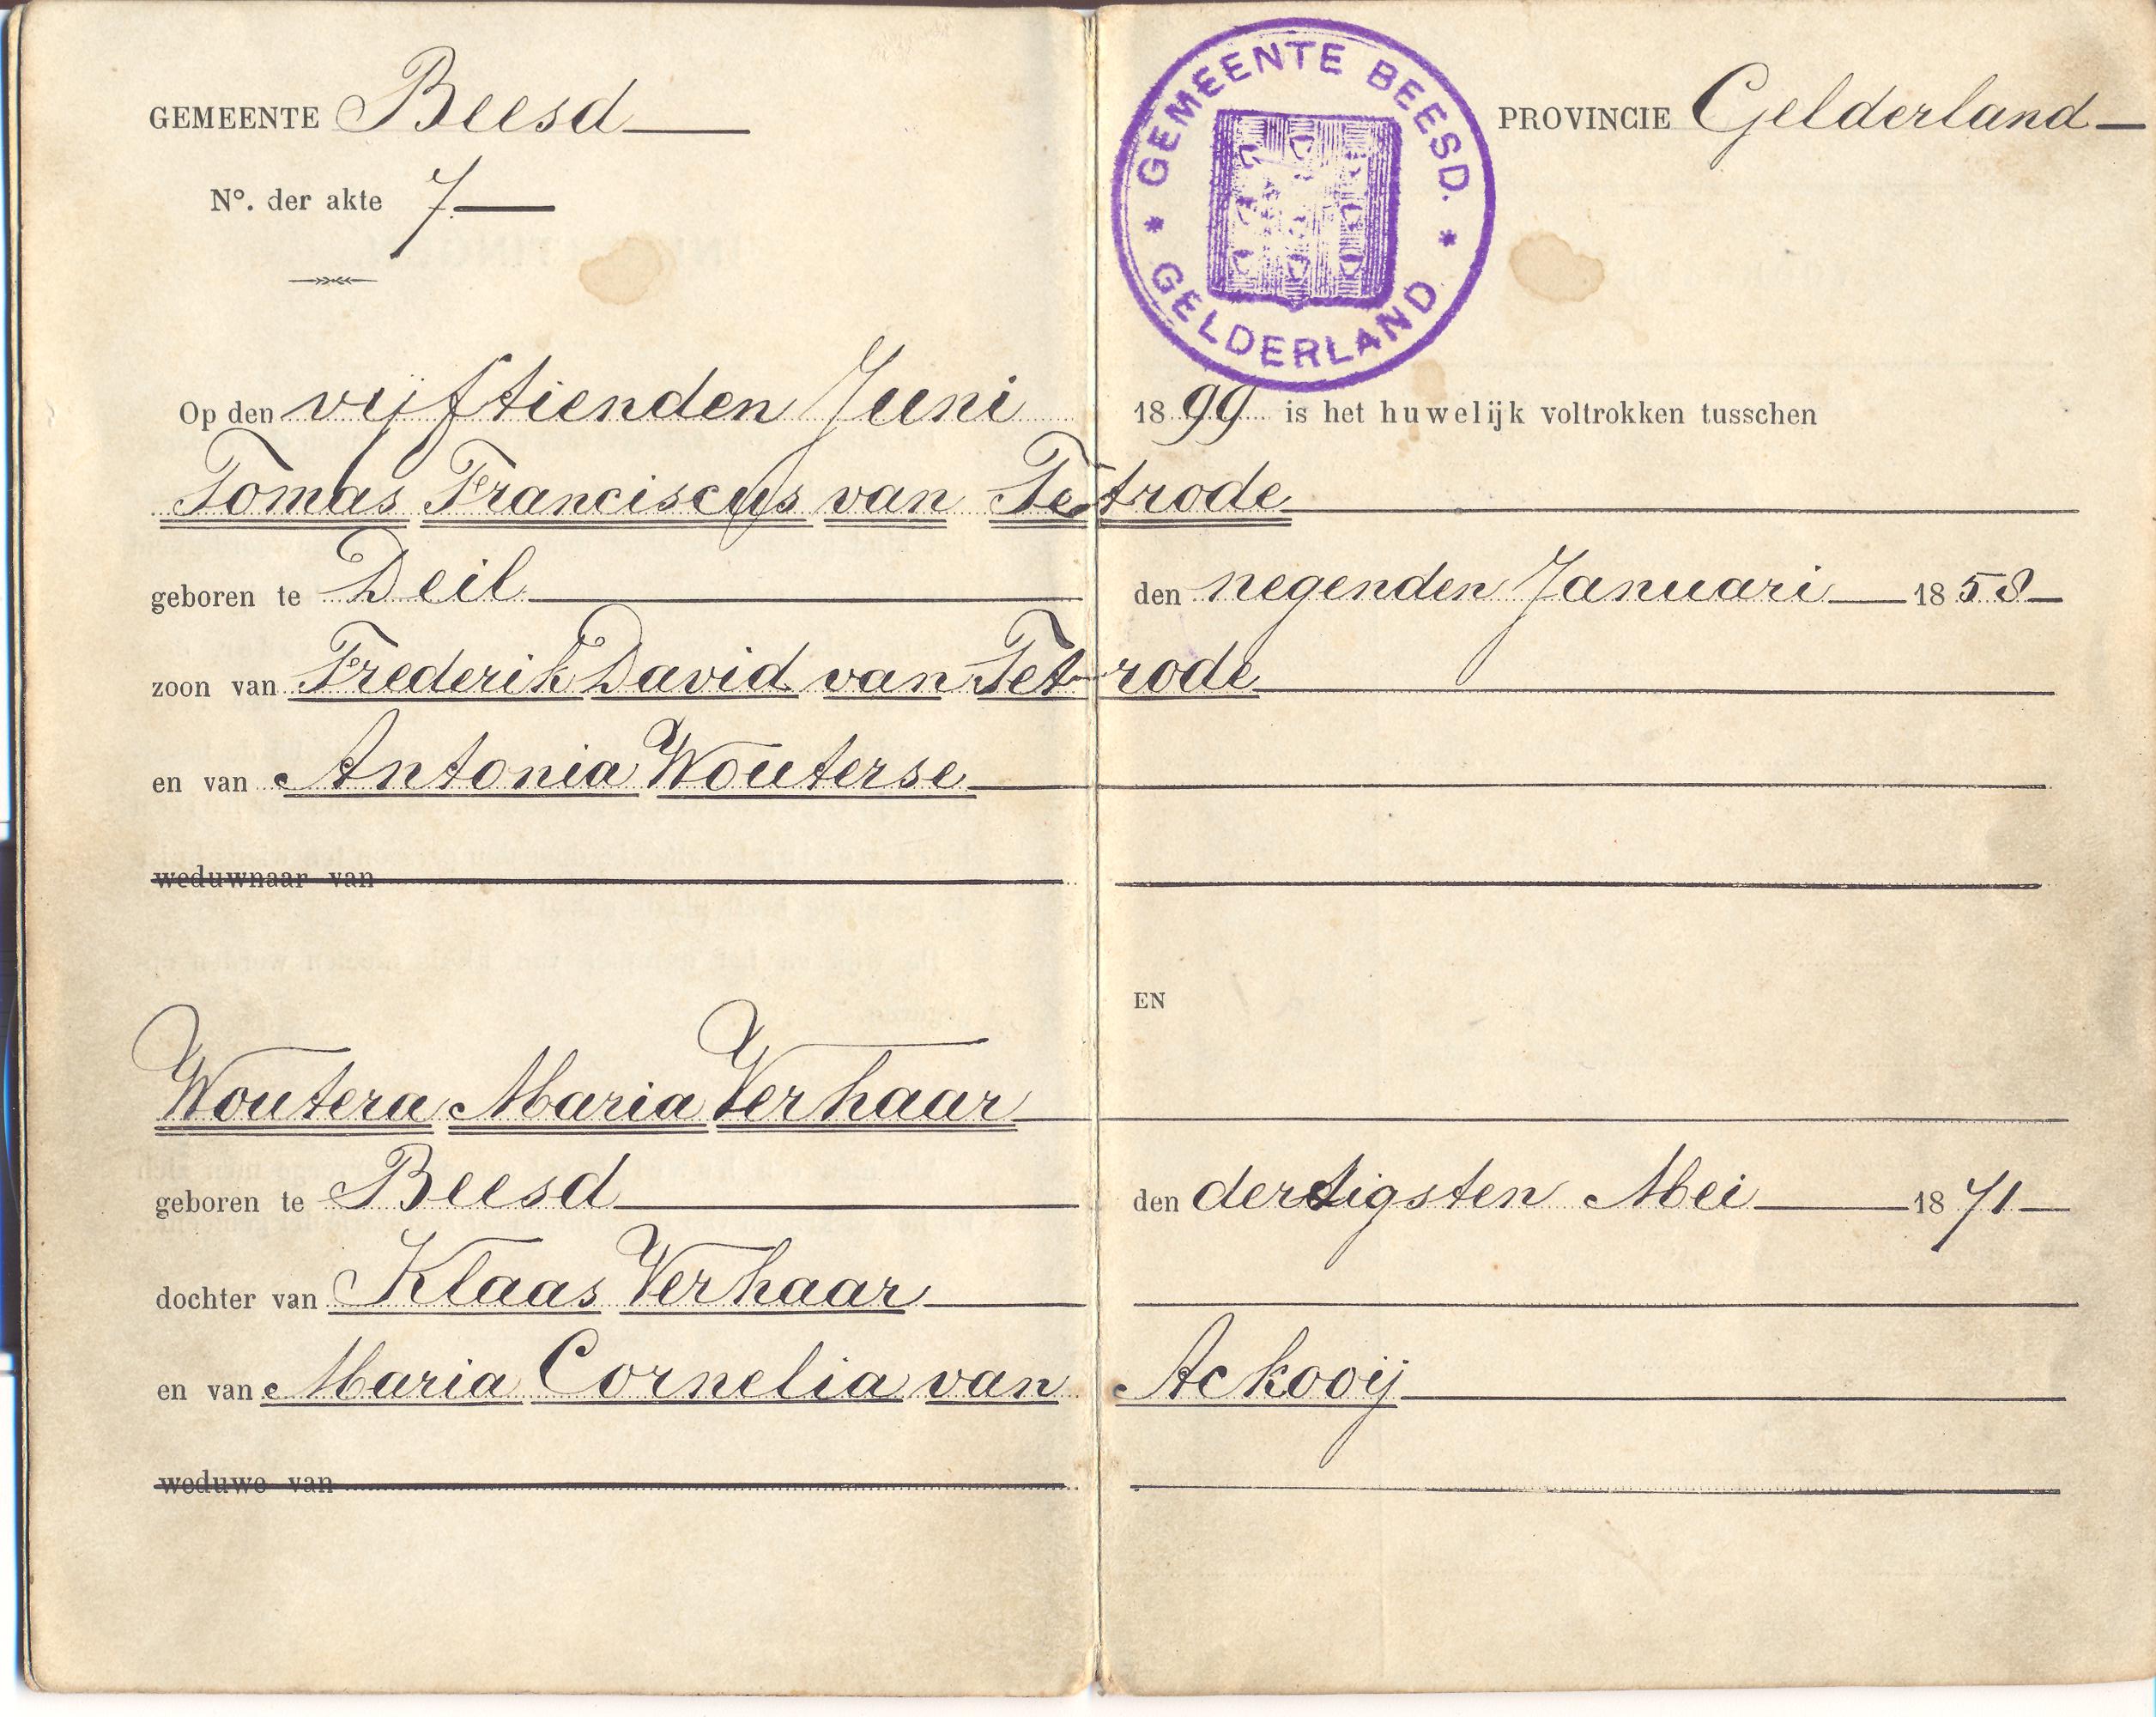 GEMEENTE Beesd
PROVINCIE Gelderland
GEMEENTE BEESD.
* GELDERLAND *
Nº. der akte 7
Op den vijftienden Juni 1899 is het huwelijk voltrokken tusschen
Tomas Franciscus van Tetrode
geboren te Deil den negenden Januari 1858
zoon van Frederik David van Tetrode
en van Antonia Wouterse
weduwnaar van
EN
Woutera Maria Verhaar
geboren te Beesd den dertigsten Mei 1871
dochter van Klaas Verhaar
en van Maria Cornelia van Ackooij
weduwe van